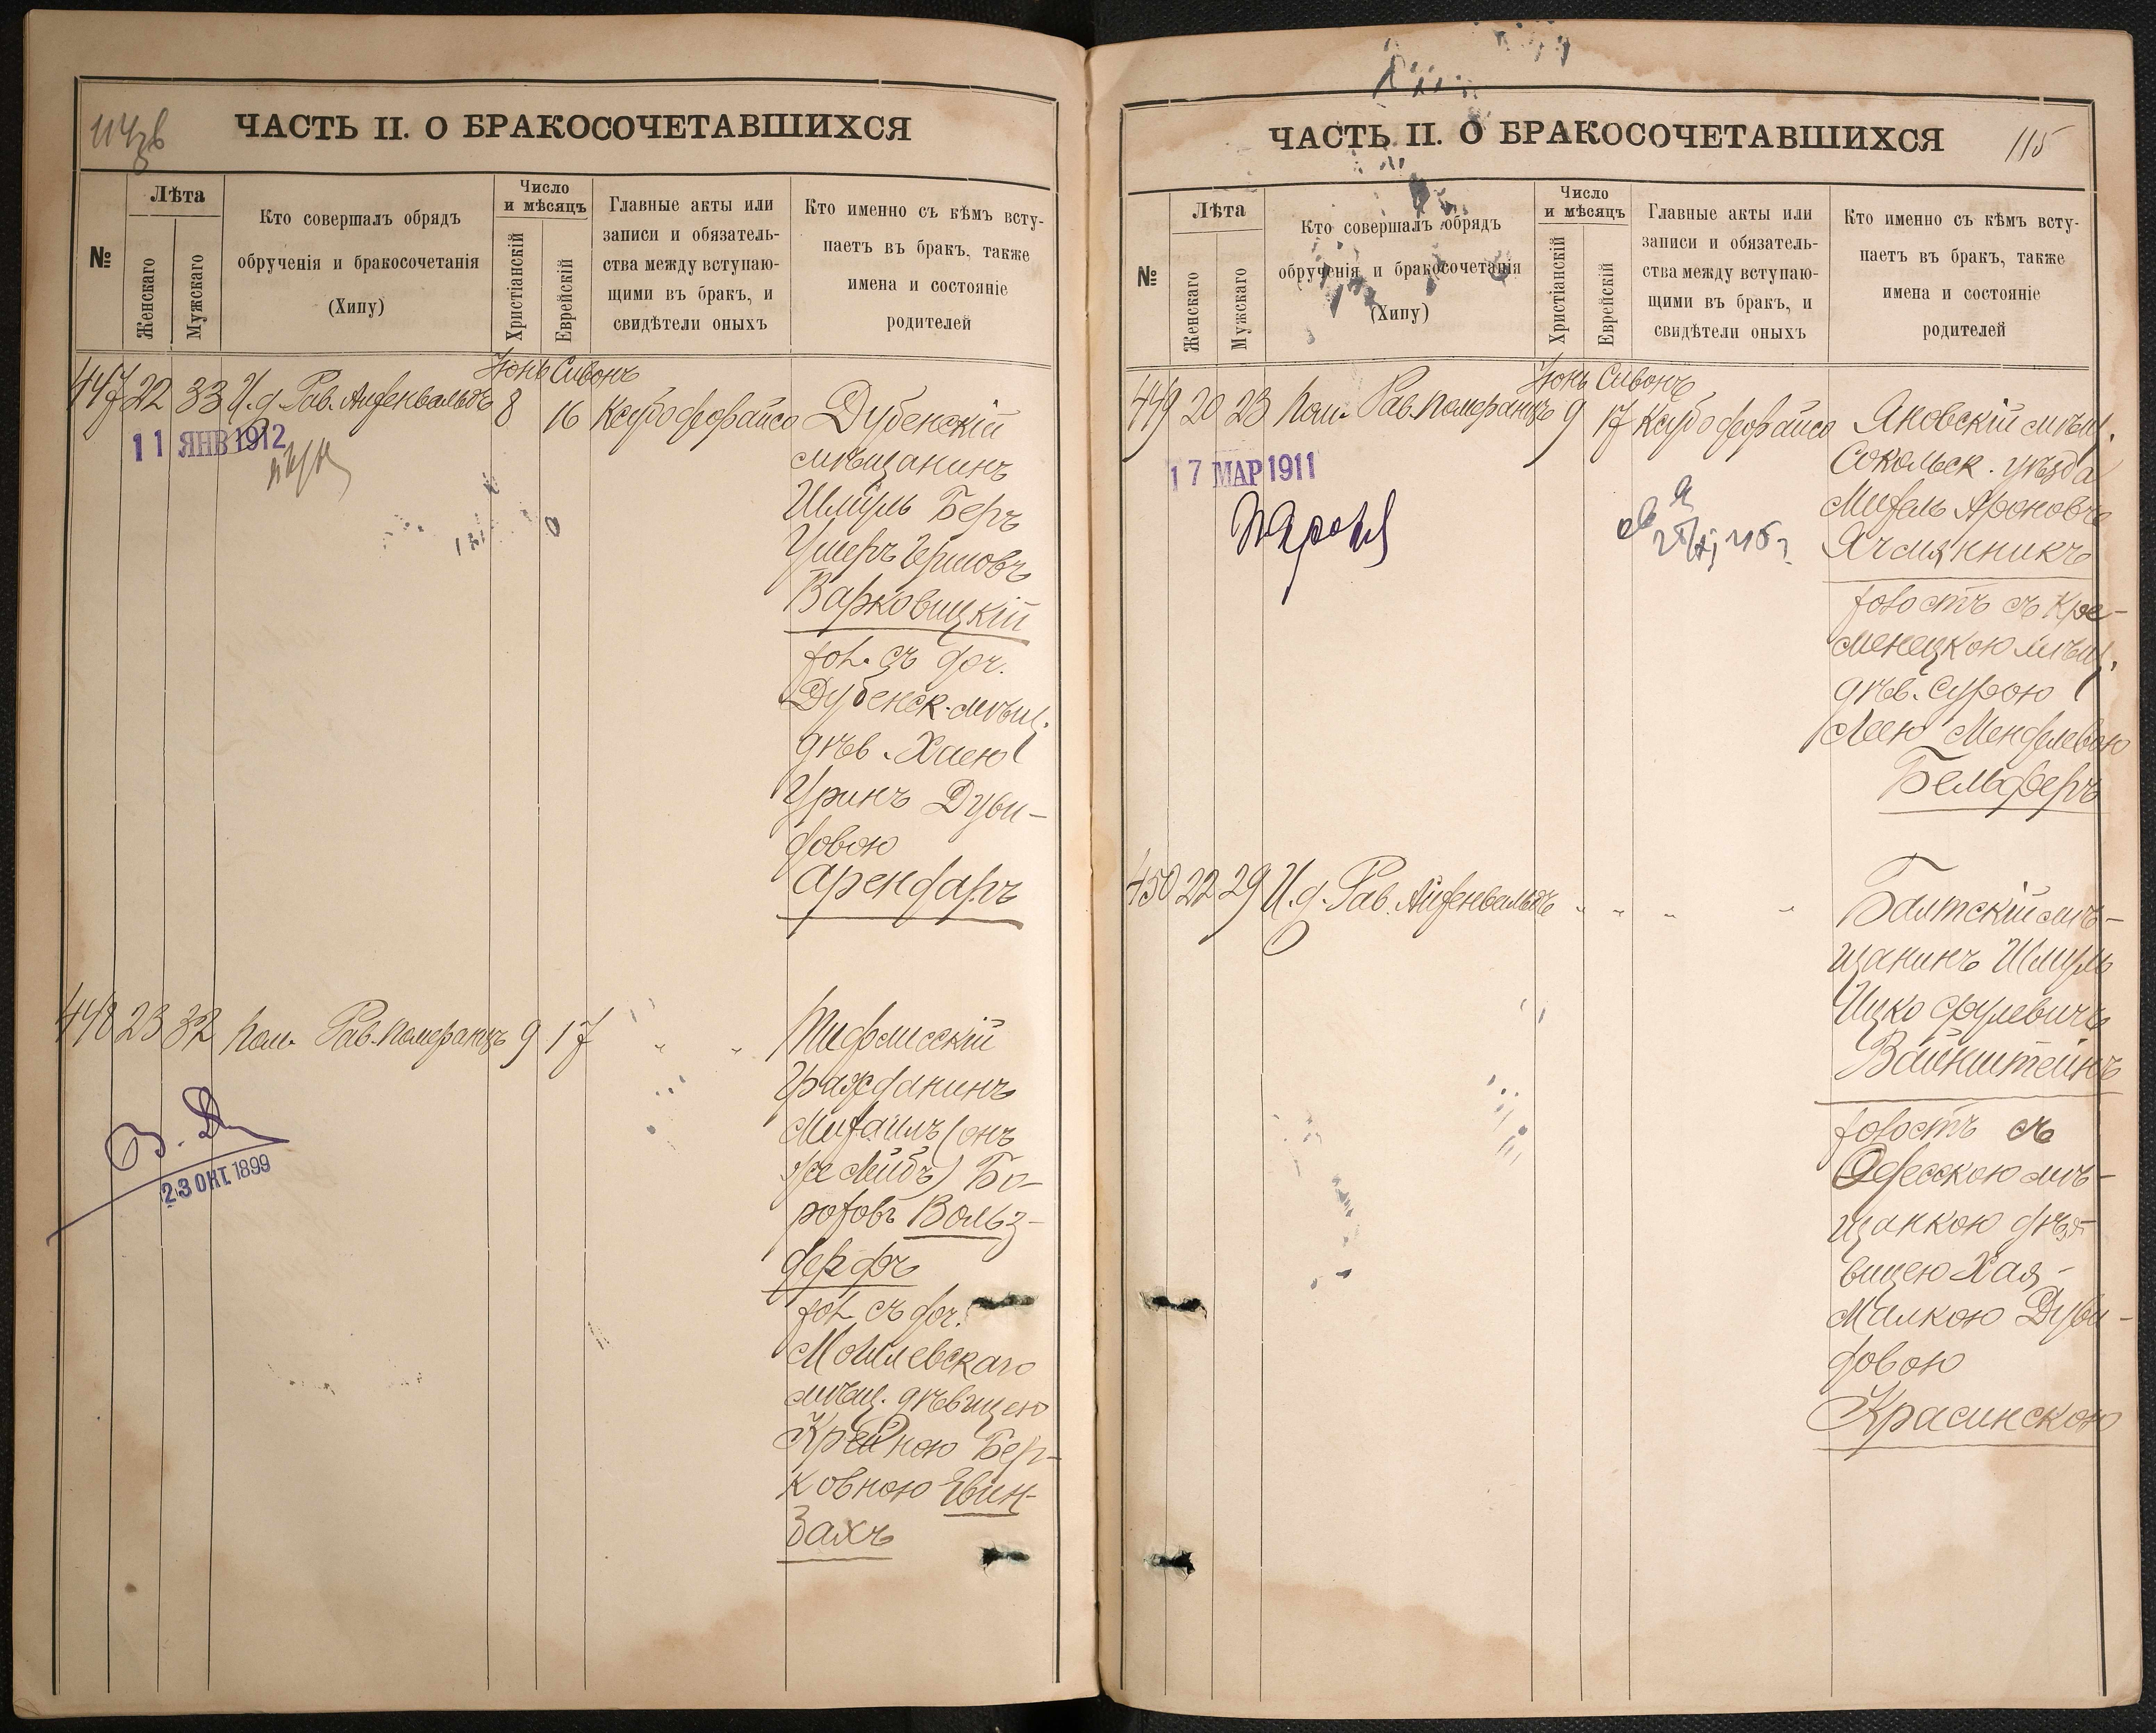 ЧАСТЬ II. О БРАКОСОЧЕТАВШИХСЯ
№
Лѣта
Женскаго
Мужскаго
Кто совершалъ обрядъ
обрученія и бракосочетанія
(Хипу)
Число
и мѣсяцъ
Христіанскій
Еврейскій
Главные акты или
записи и обязатель-
ства между вступаю-
щими въ бракъ, и
свидѣтели оныхъ
Кто именно съ кѣмъ всту-
паетъ въ бракъ, также
имена и состояніе
родителей
Іюнь Сивонъ
447 22 33 И.д. Рав. Айзенвальдъ 8 16 Дубенскій
мѣщанинъ
Шмуль Беръ
Ушеръ Гершовъ
Варковицкій
хол. съ доч.
Дубенск. мѣщ.
дѣв. Хаею
Дуви-
довою
Арендаръ
11 ЯНВ 1912
448 23 32 Пом. Рав. Померанцъ 9 17 " " Тифлисскій
Гражданинъ
Михаилъ (онъ
же Лейбъ) Бо-
роховъ Вольз-
дерфъ
хол. съ доч.
Могилевскаго
мѣщ. дѣвицею
Крейною Бер-
ковною Евин-
захъ
23 ОКТ. 1899
ЧАСТЬ II. О БРАКОСОЧЕТАВШИХСЯ
115
№
Лѣта
Женскаго
Мужскаго
Кто совершалъ обрядъ
обрученія и бракосочетанія
(Хипу)
Число
и мѣсяцъ
Христіанскій
Еврейскій
Главные акты или
записи и обязатель-
ства между вступаю-
щими въ бракъ, и
свидѣтели оныхъ
Кто именно съ кѣмъ всту-
паетъ въ бракъ, также
имена и состояніе
родителей
Іюнь Сивонъ
449 20 23 Пом. Рав. Померанцъ 9 17 Яновскій мѣщ.
Сокольск. уѣзда
Михель Ароновъ
Ячмянникъ
холостъ съ Кре-
менецкою мѣщ.
дѣв. Сурою
Леею Менделевою
Бельферъ
17 МАР 1911
450 22 29 И.д. Рав. Айзенвальдъ " " " " Балтскій мѣ-
щанинъ Шмуль
Ицко
Вайнштейнъ
холостъ съ
Одесскою мѣ-
щанкою дѣ-
вицею Хая-
Малкою Дуви-
довою
Красинскою